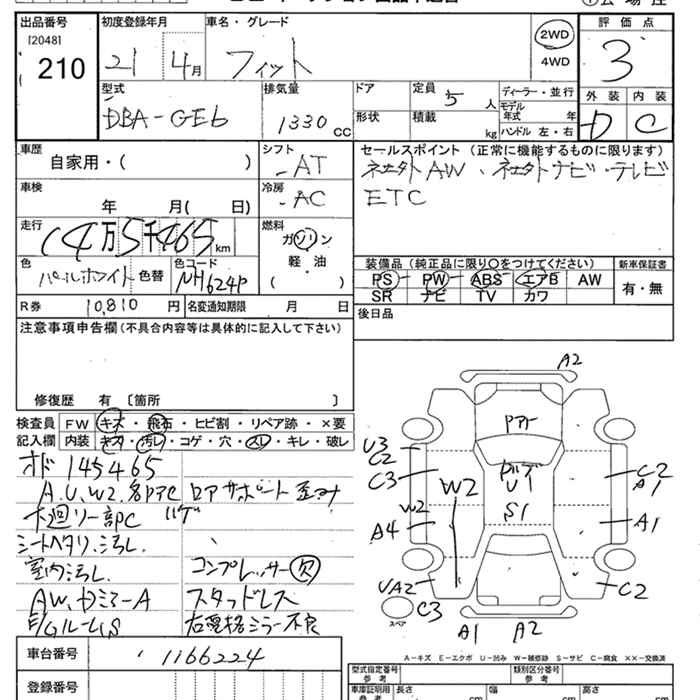 出品番号
[2048]
210
初度登録年月
21 4月
車名・グレード
フィット
2WD
4WD
評価点
3
外装 内装
D C
型式
DBA-GE6
排気量
1330 CC
ドア
形状
定員 5 人
積載 kg
ディーラー・並行
モデル年式 年
ハンドル 左・右
車歴
自家用・( )
シフト
AT
セールスポイント (正常に機能するものに限ります)
社外AW、社外ナビ・テレビ
ETC
車検
年 月( 日)
冷房
AC
走行
14万5千465km
燃料
ガソリン
軽・油
( )
色
パールホワイト 色替
色コード
NH624P
装備品 (純正品に限り○をつけてください)
PS PW ABS エアB AW
SR ナビ TV カワ
新車保証書
有・無
R券 10,810円
名変通知期限 月 日
後日品
注意事項申告欄 (不具合内容等は具体的に記入して下さい)
修復歴 有 [箇所 ]
検査員 FW キズ・飛石・ヒビ割・リペア跡・×要
記入欄 内装 キズ・汚レ・コゲ・穴・スレ・キレ・破レ
オド 145465
A.U.W2.各所C ロアサポート歪み
下廻り一部C
シートヘタリ.汚レ.
室内汚レ.
コンプレッサー欠
AW、DミラーA
スタッドレス
右電格ミラー不良
車台番号
1166224
登録番号
A2
U3
C2
C3
W2
A4
UA2
C3
W2
U1
S1
C2
A1
A1
C2
A1 A2
スペア
A-キズ E-エクボ U-凹み W-補修跡 S-サビ C-腐食 ××-交換済
型式指定番号
参考
類別区分番号
参考
車庫証明用
参考
長さ cm
幅 cm
高さ cm